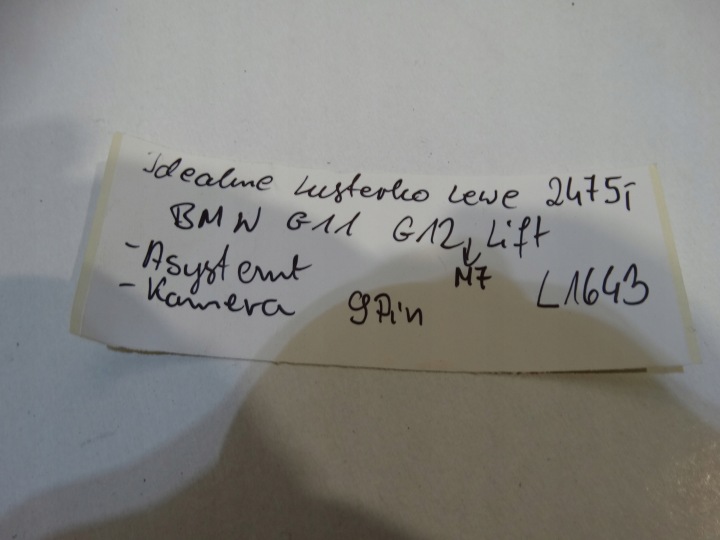 idealne lusterko lewe 2475i
BMW G11 G12 Lift
- Asystent
M7
- Kamera 9Pin
L1643